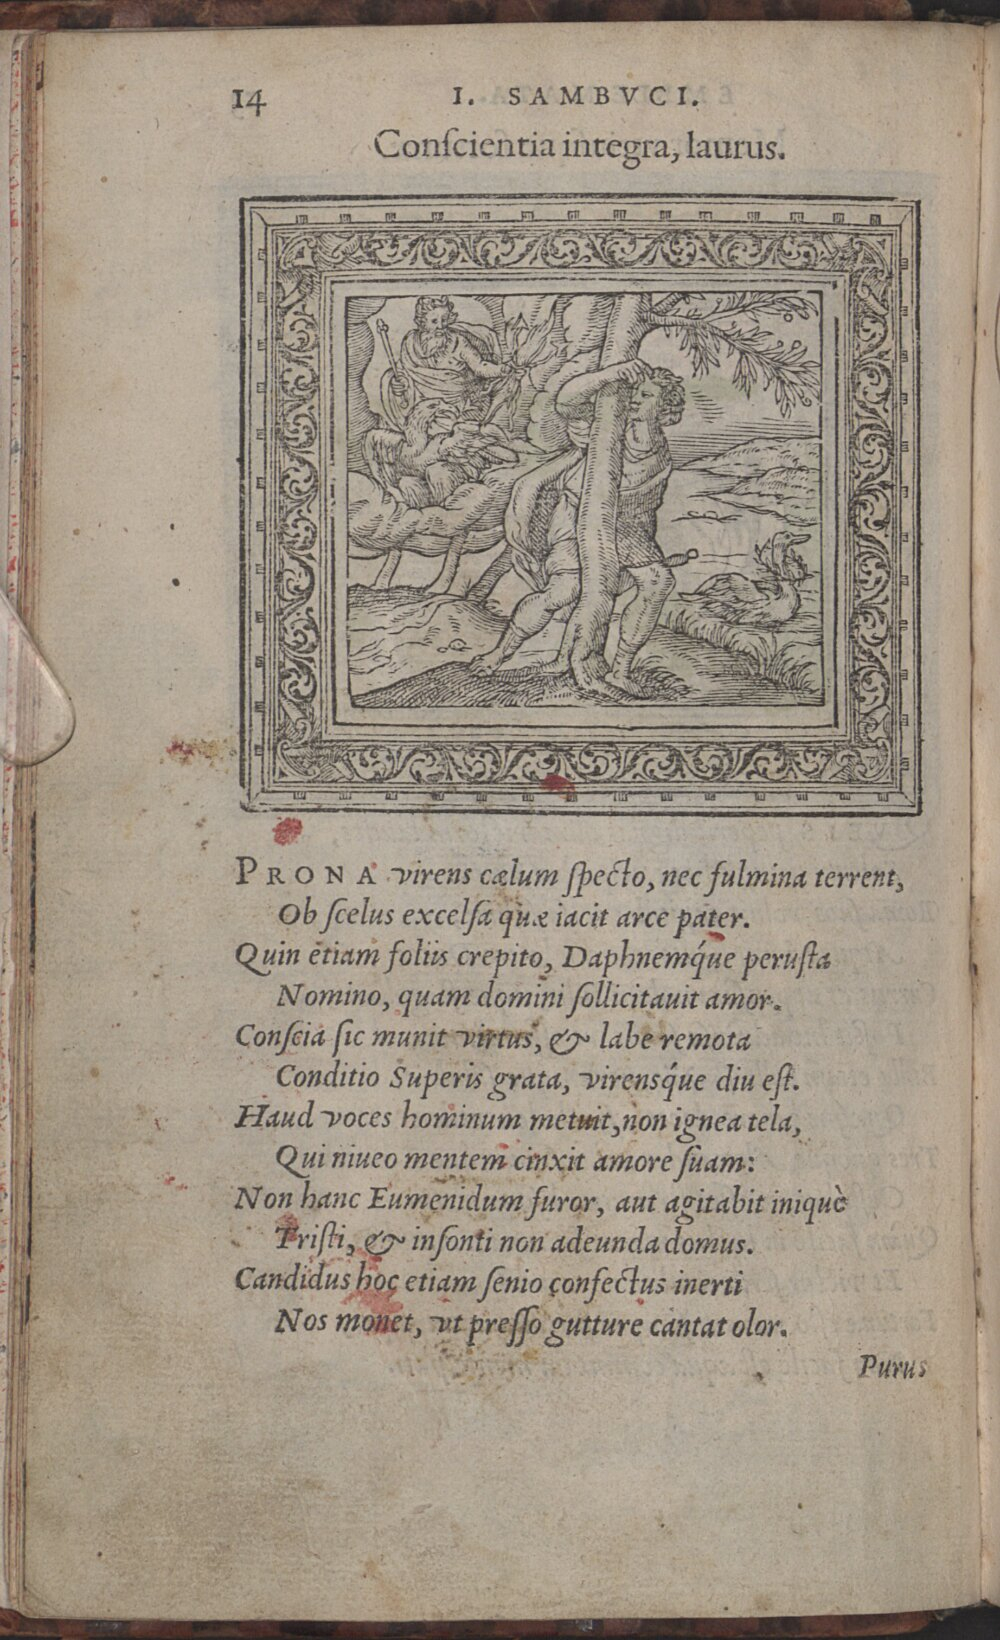 14 I. SAMBVCI.
Conſcientia integra, laurus.
PRONA virens cælum ſpecto, nec fulmina terrent,
Ob ſcelus excelſa quæ iacit arce pater.
Quin etiam foliis crepito, Daphnemq́ue peruſta
Nomino, quam domini ſollicitavit amor.
Conſcia ſic munit virtus, & labe remota
Conditio Superis grata, virensq́ue diu eſt.
Haud voces hominum metuit, non ignea tela,
Qui niueo mentem cinxit amore ſuam:
Non hanc Eumenidum furor, aut agitabit iniquè
Triſti, & inſonti non adeunda domus.
Candidus hoc etiam ſenio confectus inerti
Nos monet, vt preſſo gutture cantat olor.
Purus